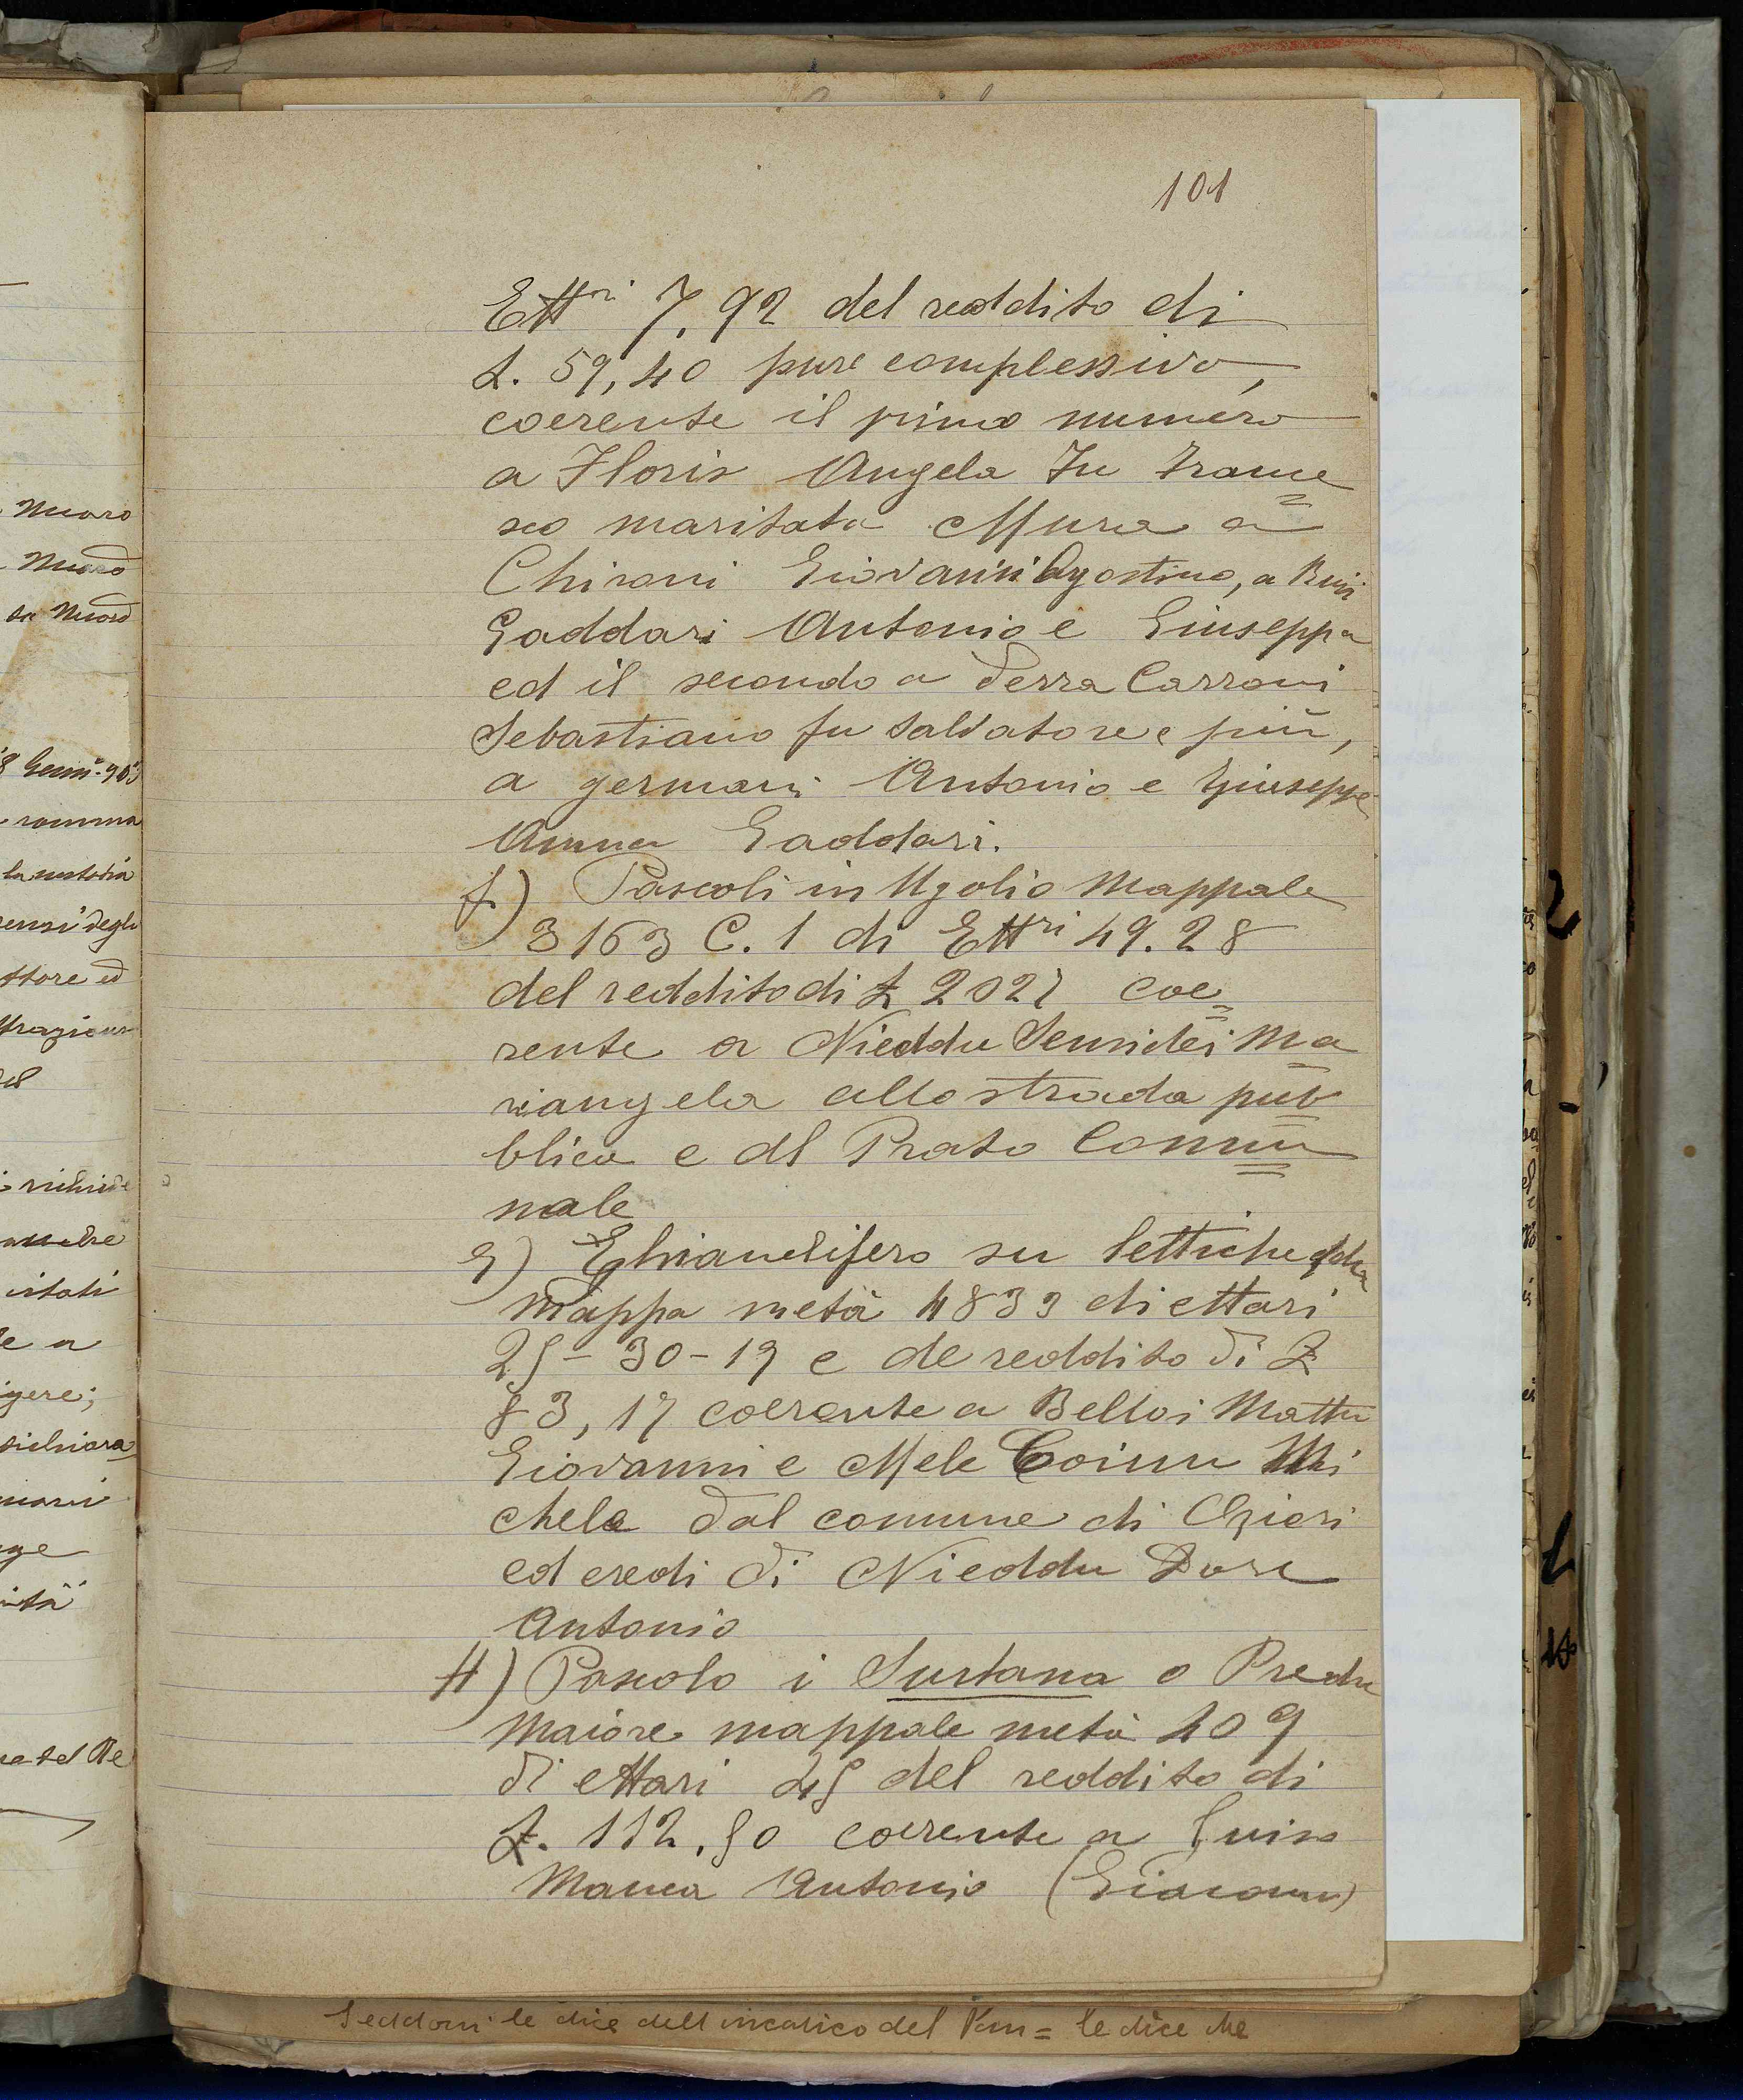 101
Ett.ri 7,92 del reddito di
L. 59,40 pure complessivo,
coerente il primo numero
a Floris Angela fu France=
sco maritata Mura a
Chironi Giovanni Agostino, a
Gaddari Antonio e Giuseppa
ed il secondo a Serra Carroni
Sebastiano fu Salvatore e più,
a germani Antonio e Giuseppe
Anna Gaddari.
f) Pascoli in Ugolio Mappale
3163 C. 1 di Ettri 49.28
del reddito di L 202 coe=
rente a Nieddu Ma
riangela alla strada pub
blica e al Prato Comu=
nale
g) Ghiandifero su Settiche
mappa metà 4833 di ettari
25-30-19 e de reddito di L
83,17 coerente a Belloi Mattu
Giovanni e Mele Coinu Mi
chele dal comune di Onieri
ed eredi di Nieddu Dore
Antonio
H) Pascolo i Surtana o Predu
Maiore mappale metà 409
di ettari 45 del reddito di
L. 112,50 coerente a Guiso
Manca Antonio (Giacomo)
Nuoro
Nuoro
da Nuoro
somma
la custodia
sensi degli
ttore ed
richiede
istati
e a
gere;
dichiara
Seddoni le dice dell'incarico del = le dice che